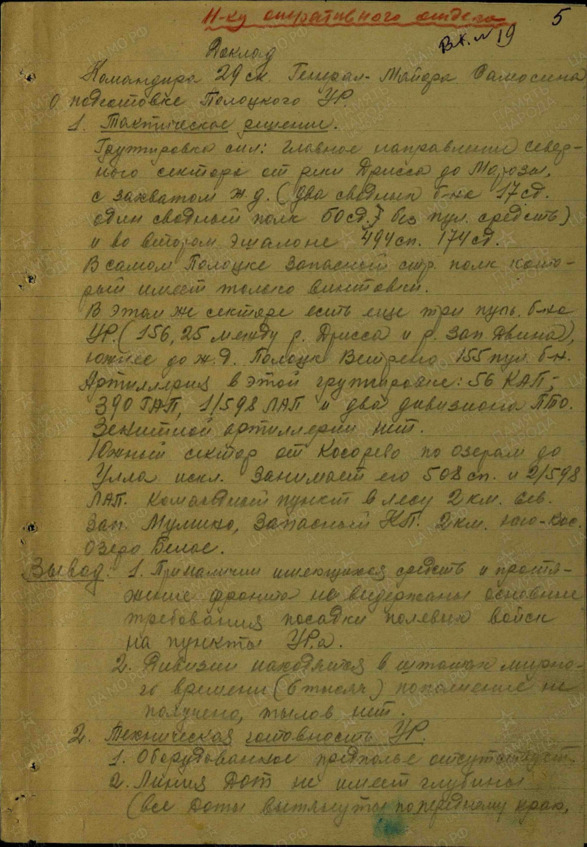 Н-ку оперативного отдела
5
Вх. № 19
Доклад
Командира 29 ск. Генерал-Майора Самосина
о подготовке Полоцкого УР
1. Тактическое решение.
Группировка сил: главное направление север-
ного сектора от реки Дрисса до Морозы,
с захватом ж.д. (два сводных б-на 17 сд.
один сводный полк 50 сд. без пул. средств)
и во втором эшелоне 494 сп. 174 сд.
В самом Полоцке Запасный стр. полк кото-
рый имеет только винтовки.
В этом же секторе есть еще три пуль. б-на
УР. (156, 25 между р. Дрисса и р. Зап Двина),
южнее до ж.д. Полоцк Ветрено 155 пул. б-н.
Артиллерия в этой группировке: 56 КАП,
390 ГАП, 1/598 ЛАП и два дивизиона ПТО.
Зенитной артиллерии нет.
Южный сектор от Косарево по озерам до
Улла искл. Занимает его 508 сп. и 2/598
ЛАП. Командный пункт в лесу 2 км. сев.
зап. Мулишко, Запасный КП. 2 км. юго-вос.
озеро Белое.
Вывод: 1. При наличии имеющихся средств и протя-
жение фронта не выдержаны основные
требования посадки полевых войск
на пункты УРа.
2. Дивизии находятся в штатах мирно-
го времени (6 тысяч) пополнение не
получено, тылов нет.
2. Техническая готовность УР
1. Оборудованное предполье отсутствует.
2. Линия Дот не имеет глубины
(все доты вытянуты по переднему краю,